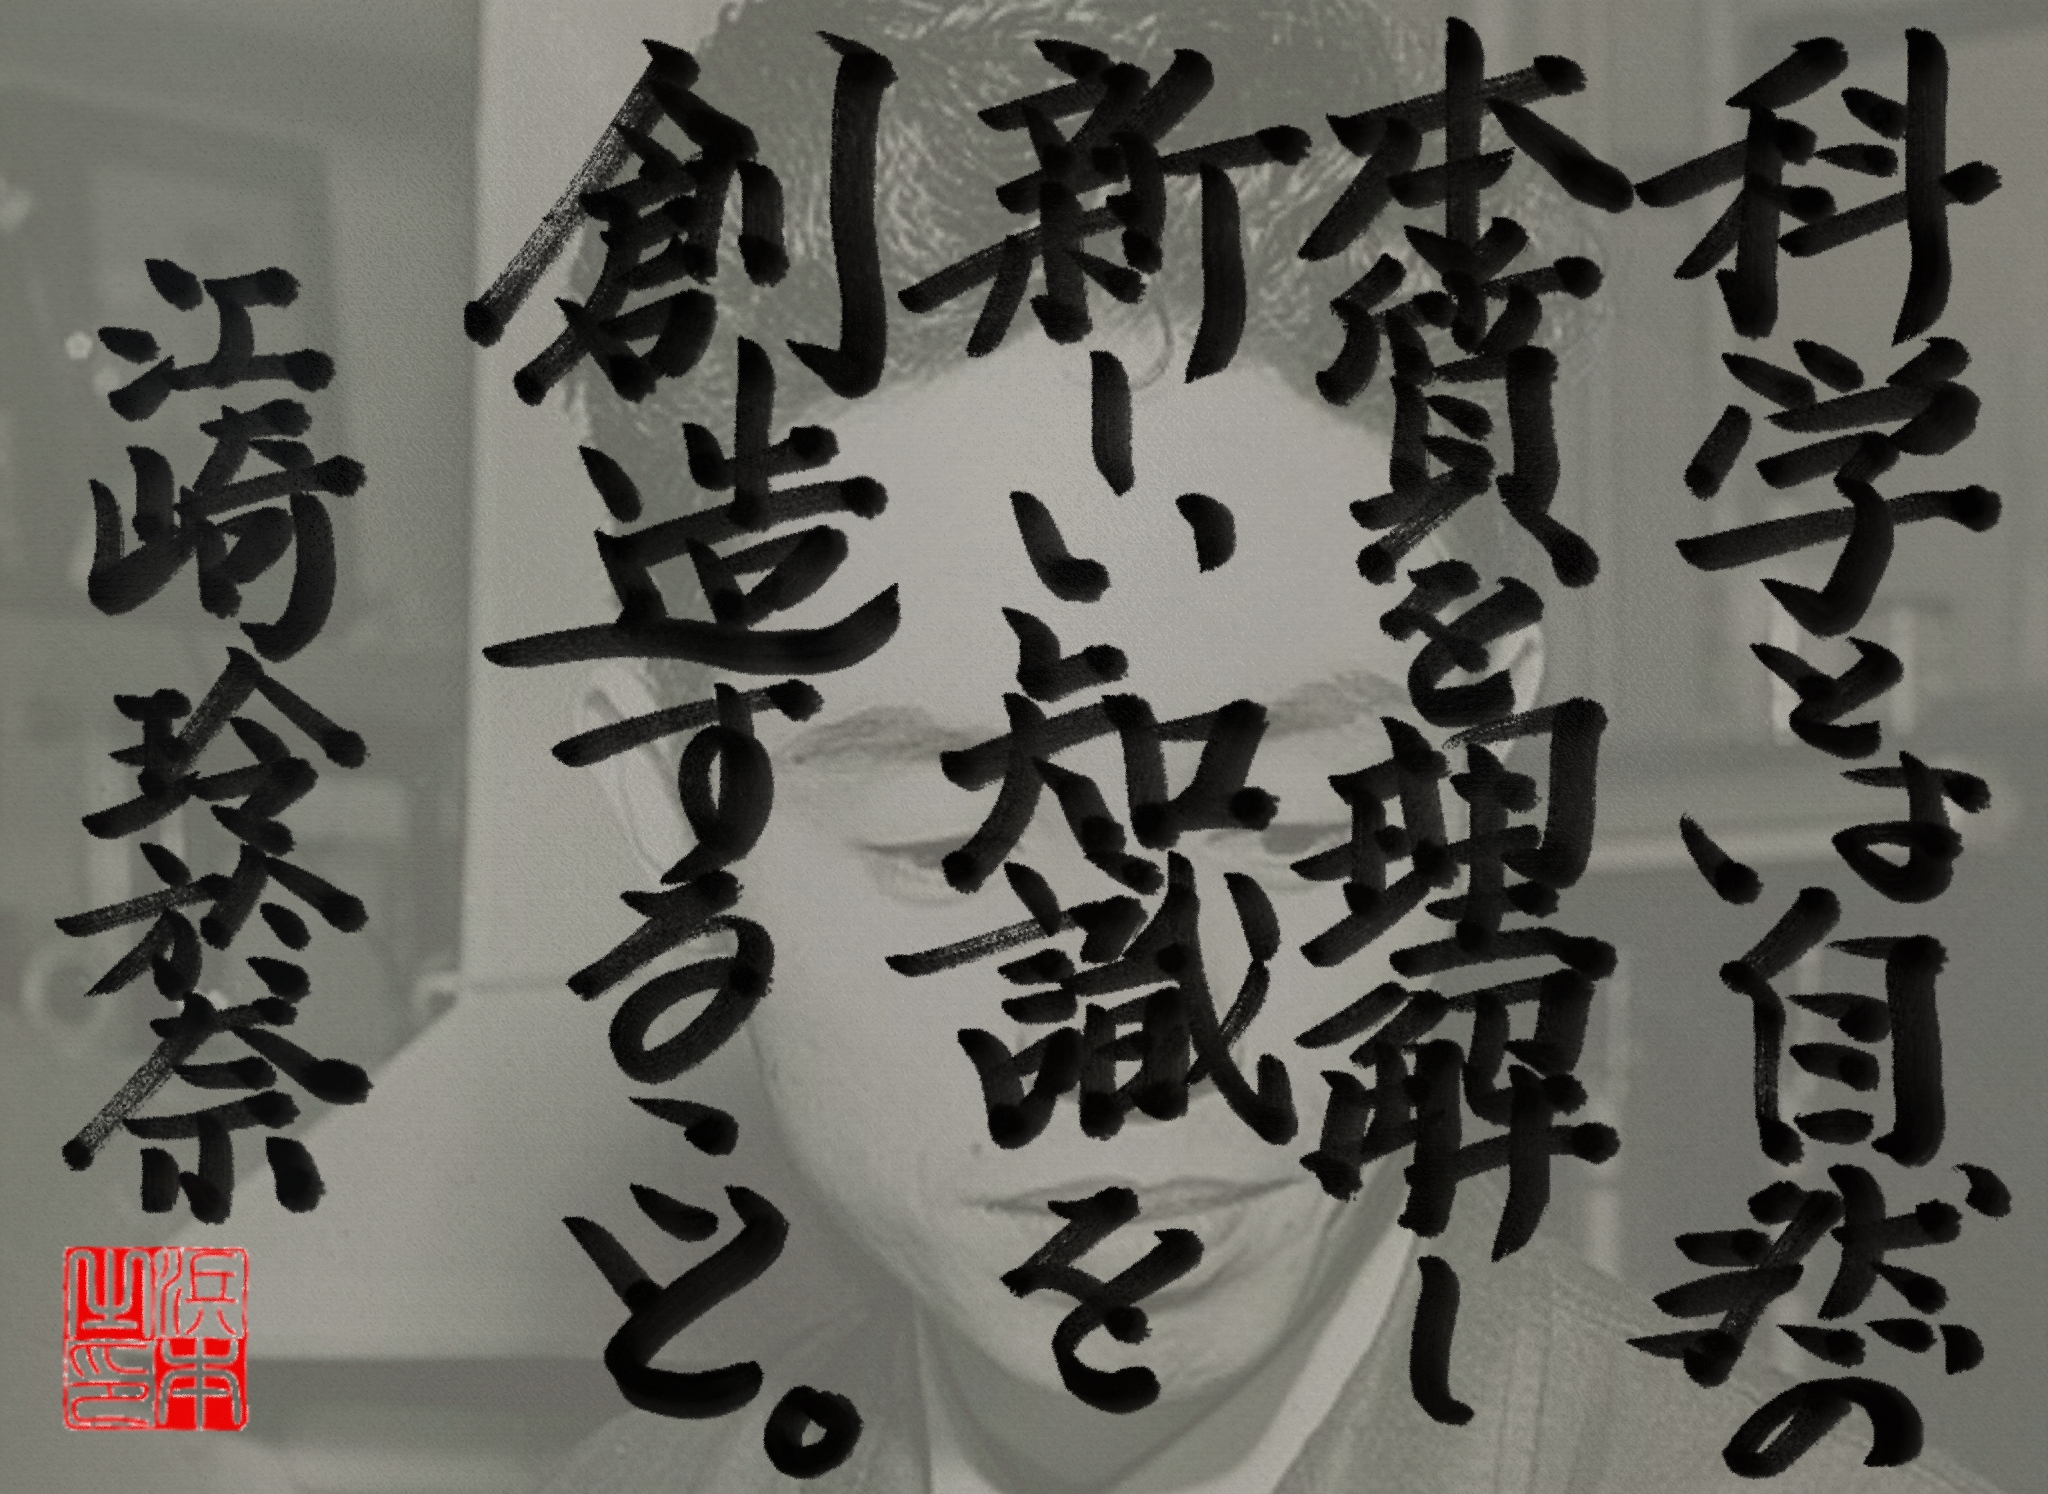 科学とは、自然の
本質を理解し
新しい知識を
創造すること。
江崎玲於奈
浜本
之印